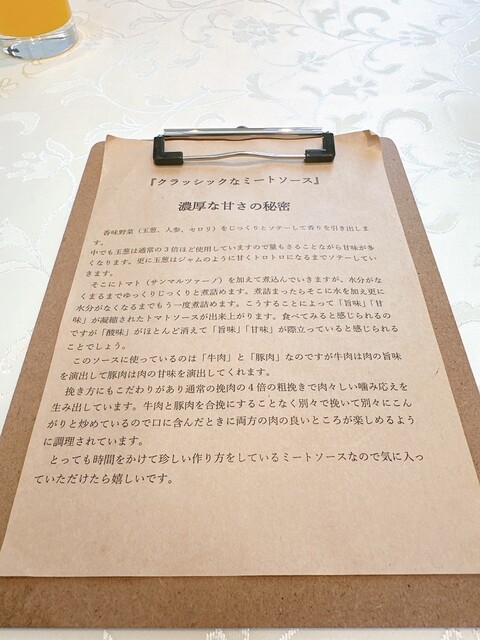 『クラッシックなミートソース』
濃厚な甘さの秘密
香味野菜（玉葱、人参、セロリ）をじっくりとソテーして香りを引き出しま
す。
中でも玉葱は通常の３倍ほど使用していますので量もさることながら甘味が多
くなります。更に玉葱はジャムのように甘くトロトロになるまでソテーしてい
きます。
そこにトマト（サンマルツァーノ）を加えて煮込んでいきますが、水分がな
くまるまでゆっくりじっくりと煮詰めます。煮詰まったらそこに水を加え更に
水分がなくなるまでもう一度煮詰めます。こうすることによって「旨味」「甘
味」が凝縮されたトマトソースが出来上がります。食べてみると感じられるの
ですが「酸味」がほとんど消えて「旨味」「甘味」が際立っていると感じられる
ことでしょう。
このソースに使っているのは「牛肉」と「豚肉」なのですが牛肉は肉の旨味
を演出して豚肉は肉の甘味を演出してくれます。
挽き方にもこだわりがあり通常の挽肉の４倍の粗挽きで肉々しい噛み応えを
生み出しています。牛肉と豚肉を合挽にすることなく別々で挽いて別々にこん
がりと炒めているので口に含んだときに両方の肉の良いところが楽しめるよう
に調理されています。
とっても時間をかけて珍しい作り方をしているミートソースなので気に入っ
ていただけたら嬉しいです。